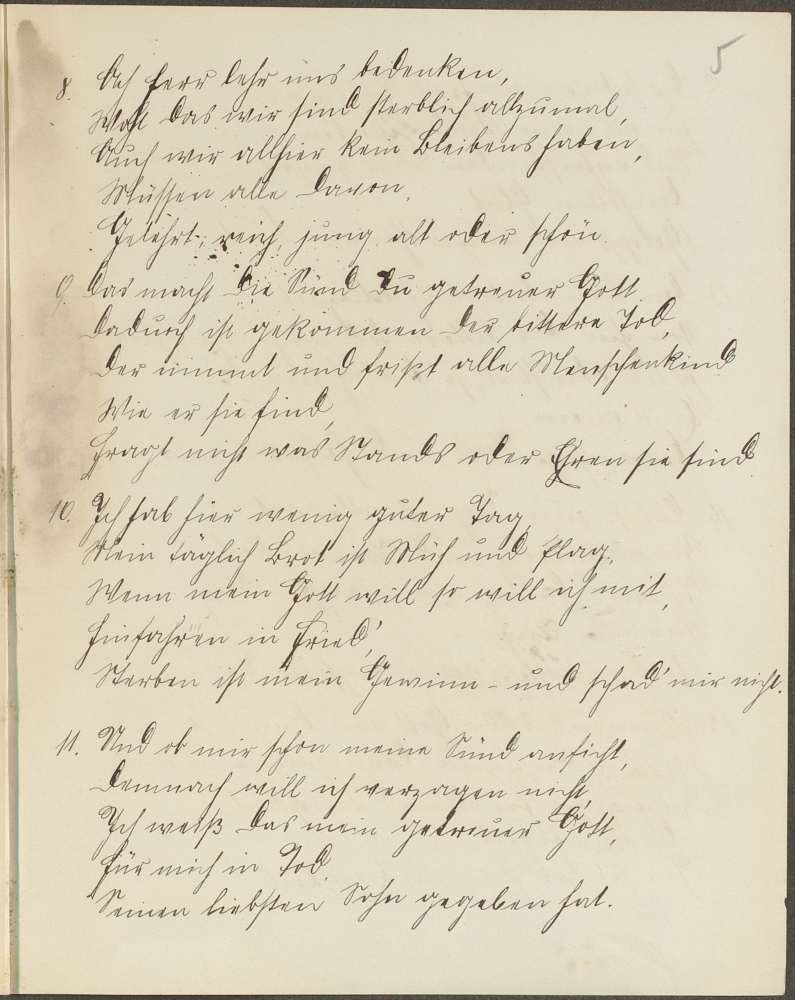 5
8. Ach Herr lehr uns bedenken,
Wohl das wir sind sterblich allzumal,
Auch wir allhier kein Bleibens haben,
Müssen alle davon,
Gelehrt, reich, jung, alt oder schön.
9. Das macht die Sünd du getreuer Gott
Dadurch ist gekommen der bittere Tod,
Der nimmt und frißt alle Menschenkind
Wie er sie find,
Fragt nicht was Stands oder Ehren sie sind.
10. Ich hab hier wenig guter Tag,
Mein täglich Brot ist Müh und Plag,
Wenn mein Gott will so will ich mit,
Hinfahren in Fried',
Sterben ist mein Gewinn – und schad' mir nicht.
11. Und ob mir schon meine Sünd anficht,
Demnach will ich verzagen nicht,
Ich weiß das mein getreuer Gott,
Für mich in Tod,
Seinen liebsten Sohn gegeben hat.